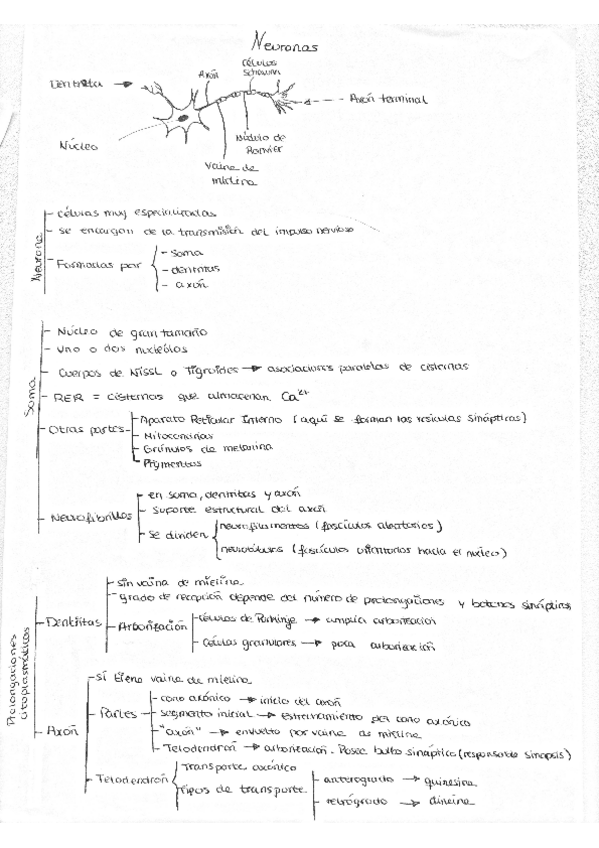 Neuronas
Células
Schwann
Axón
Dentrita
Axón terminal
Núcleo
Nódulo de
Ranvier
Vaina de
mielina
Neurona
células muy especializadas
se encargan de la transmisión del impulso nervioso
Formadas por
- soma
- dentritas
- axón
Soma
Núcleo de gran tamaño
Uno o dos nucleolos
Cuerpos de Nissl o Tigroides → asociaciones paralelas de cisternas
RER = cisternas que almacenan Ca2+
Otras partes
Aparato Reticular Interno (aquí se forman las vesículas sinápticas)
Mitocondrias
Gránulos de melanina
Pigmentos
Neurofibrillas
en soma, dentritas y axón
Soporte estructural del axón
se dividen
neurofilamentos (fascículos aleatorios)
neurotúbulos (fascículos hacia el núcleo)
Prolongaciones
citoplasmáticas
Dentritas
sin vaina de mielina
grado de recepción depende del número de prolongaciones y botones sinápticos
Arborización
células de Purkinje → amplia arborización
células granulares → poca arborización
Axón
sí tiene vaina de mielina
Partes
cono axónico → inicio del axón
segmento inicial → estrechamiento del cono axónico
"axón" → envuelto por vaina de mielina
Telodendrón → arborización. Posee bulto sináptico (responsable sinapsis)
Telodendrón
Transporte axónico
Tipos de transporte
anterogrado → quinesina
retrógrado → dineina